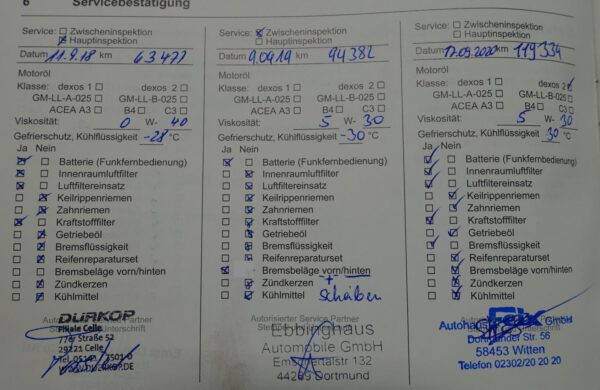 6 Servicebestätigung
Service: Zwischeninspektion
Hauptinspektion
Datum 11.9.18 km 63477
Motoröl
Klasse: dexos 1 dexos 2
GM-LL-A-025 GM-LL-B-025
ACEA A3 B4 C3
Viskosität: 0 W- 40
Gefrierschutz, Kühlflüssigkeit -28 °C
Ja Nein
Batterie (Funkfernbedienung)
Innenraumluftfilter
Luftfiltereinsatz
Keilrippenriemen
Zahnriemen
Kraftstofffilter
Getriebeöl
Bremsflüssigkeit
Reifenreparaturset
Bremsbeläge vorn/hinten
Zündkerzen
Kühlmittel
DÜRKOP
Filiale Celle
77er Straße 52
29221 Celle
WWW.DUERKOP.DE
Service: Zwischeninspektion
Hauptinspektion
Datum 9.04.19 km 94382
Motoröl
Klasse: dexos 1 dexos 2
GM-LL-A-025 GM-LL-B-025
ACEA A3 B4 C3
Viskosität: 5 W- 30
Gefrierschutz, Kühlflüssigkeit -30 °C
Ja Nein
Batterie (Funkfernbedienung)
Innenraumluftfilter
Luftfiltereinsatz
Keilrippenriemen
Zahnriemen
Kraftstofffilter
Getriebeöl
Bremsflüssigkeit
Reifenreparaturset
Bremsbeläge vorn/hinten
Zündkerzen +
Kühlmittel Scheiben
Autorisierter Service Partner
Ebbinghaus
Automobile GmbH
Emscherallee 132
44269 Dortmund
Service: Zwischeninspektion
Hauptinspektion
Datum 17.09.2020 km 119334
Motoröl
Klasse: dexos 1 dexos 2
GM-LL-A-025 GM-LL-B-025
ACEA A3 B4 C3
Viskosität: 5 W- 30
Gefrierschutz, Kühlflüssigkeit 30 °C
Ja Nein
Batterie (Funkfernbedienung)
Innenraumluftfilter
Luftfiltereinsatz
Keilrippenriemen
Zahnriemen
Kraftstofffilter
Getriebeöl
Bremsflüssigkeit
Reifenreparaturset
Bremsbeläge vorn/hinten
Zündkerzen
Kühlmittel
Autohaus Feix GmbH
Dortmunder Str. 56
58453 Witten
Telefon 02302/20 20 20